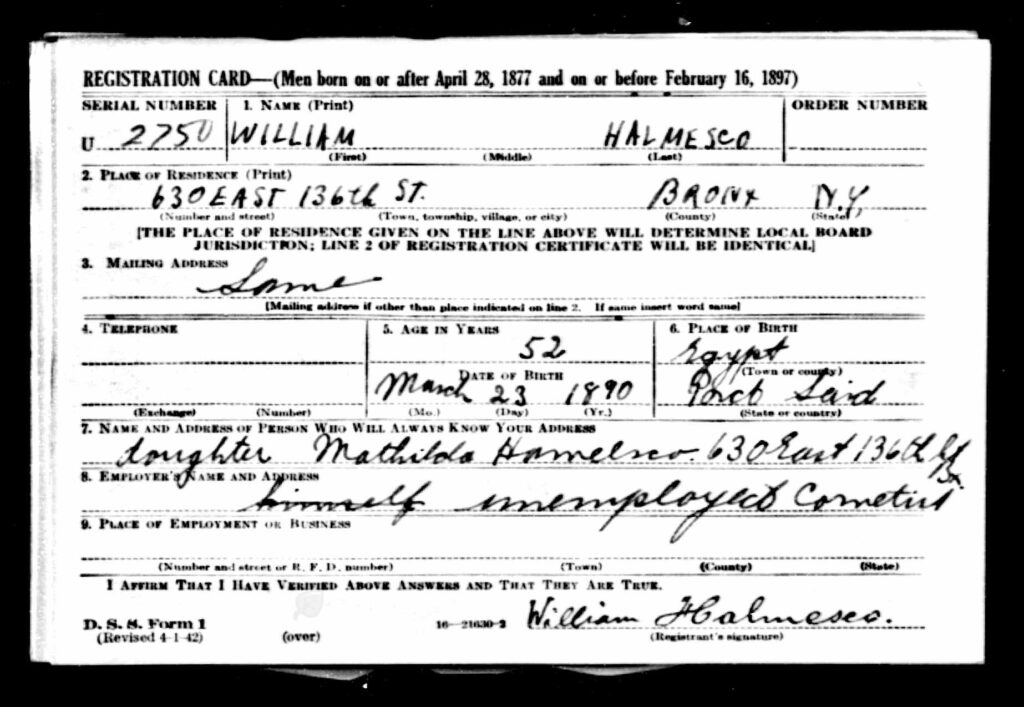 REGISTRATION CARD—(Men born on or after April 28, 1877 and on or before February 16, 1897)
SERIAL NUMBER 1. NAME (Print) ORDER NUMBER
U 2750 WILLIAM HALMESCO
(First) (Middle) (Last)
2. PLACE OF RESIDENCE (Print)
630 EAST 136th ST. BRONX N.Y.
(Number and street) (Town, township, village, or city) (County) (State)
[THE PLACE OF RESIDENCE GIVEN ON THE LINE ABOVE WILL DETERMINE LOCAL BOARD
JURISDICTION; LINE 2 OF REGISTRATION CERTIFICATE WILL BE IDENTICAL]
3. MAILING ADDRESS
Same
[Mailing address if other than place indicated on line 2. If same insert word same]
4. TELEPHONE 5. AGE IN YEARS 6. PLACE OF BIRTH
52 Egypt
DATE OF BIRTH (Town or county)
March 23 1890 Port Said
(Exchange) (Number) (Mo.) (Day) (Yr.) (State or country)
7. NAME AND ADDRESS OF PERSON WHO WILL ALWAYS KNOW YOUR ADDRESS
daughter Mathilda Hamelsco. 630 East 136th St
Bx.
8. EMPLOYER'S NAME AND ADDRESS
himself unemployed
9. PLACE OF EMPLOYMENT OR BUSINESS
(Number and street or R. F. D. number) (Town) (County) (State)
I AFFIRM THAT I HAVE VERIFIED ABOVE ANSWERS AND THAT THEY ARE TRUE.
William Halmesco.
D. S. S. Form 1
(Revised 4-1-42) (over) 16—21630-2 (Registrant's signature)